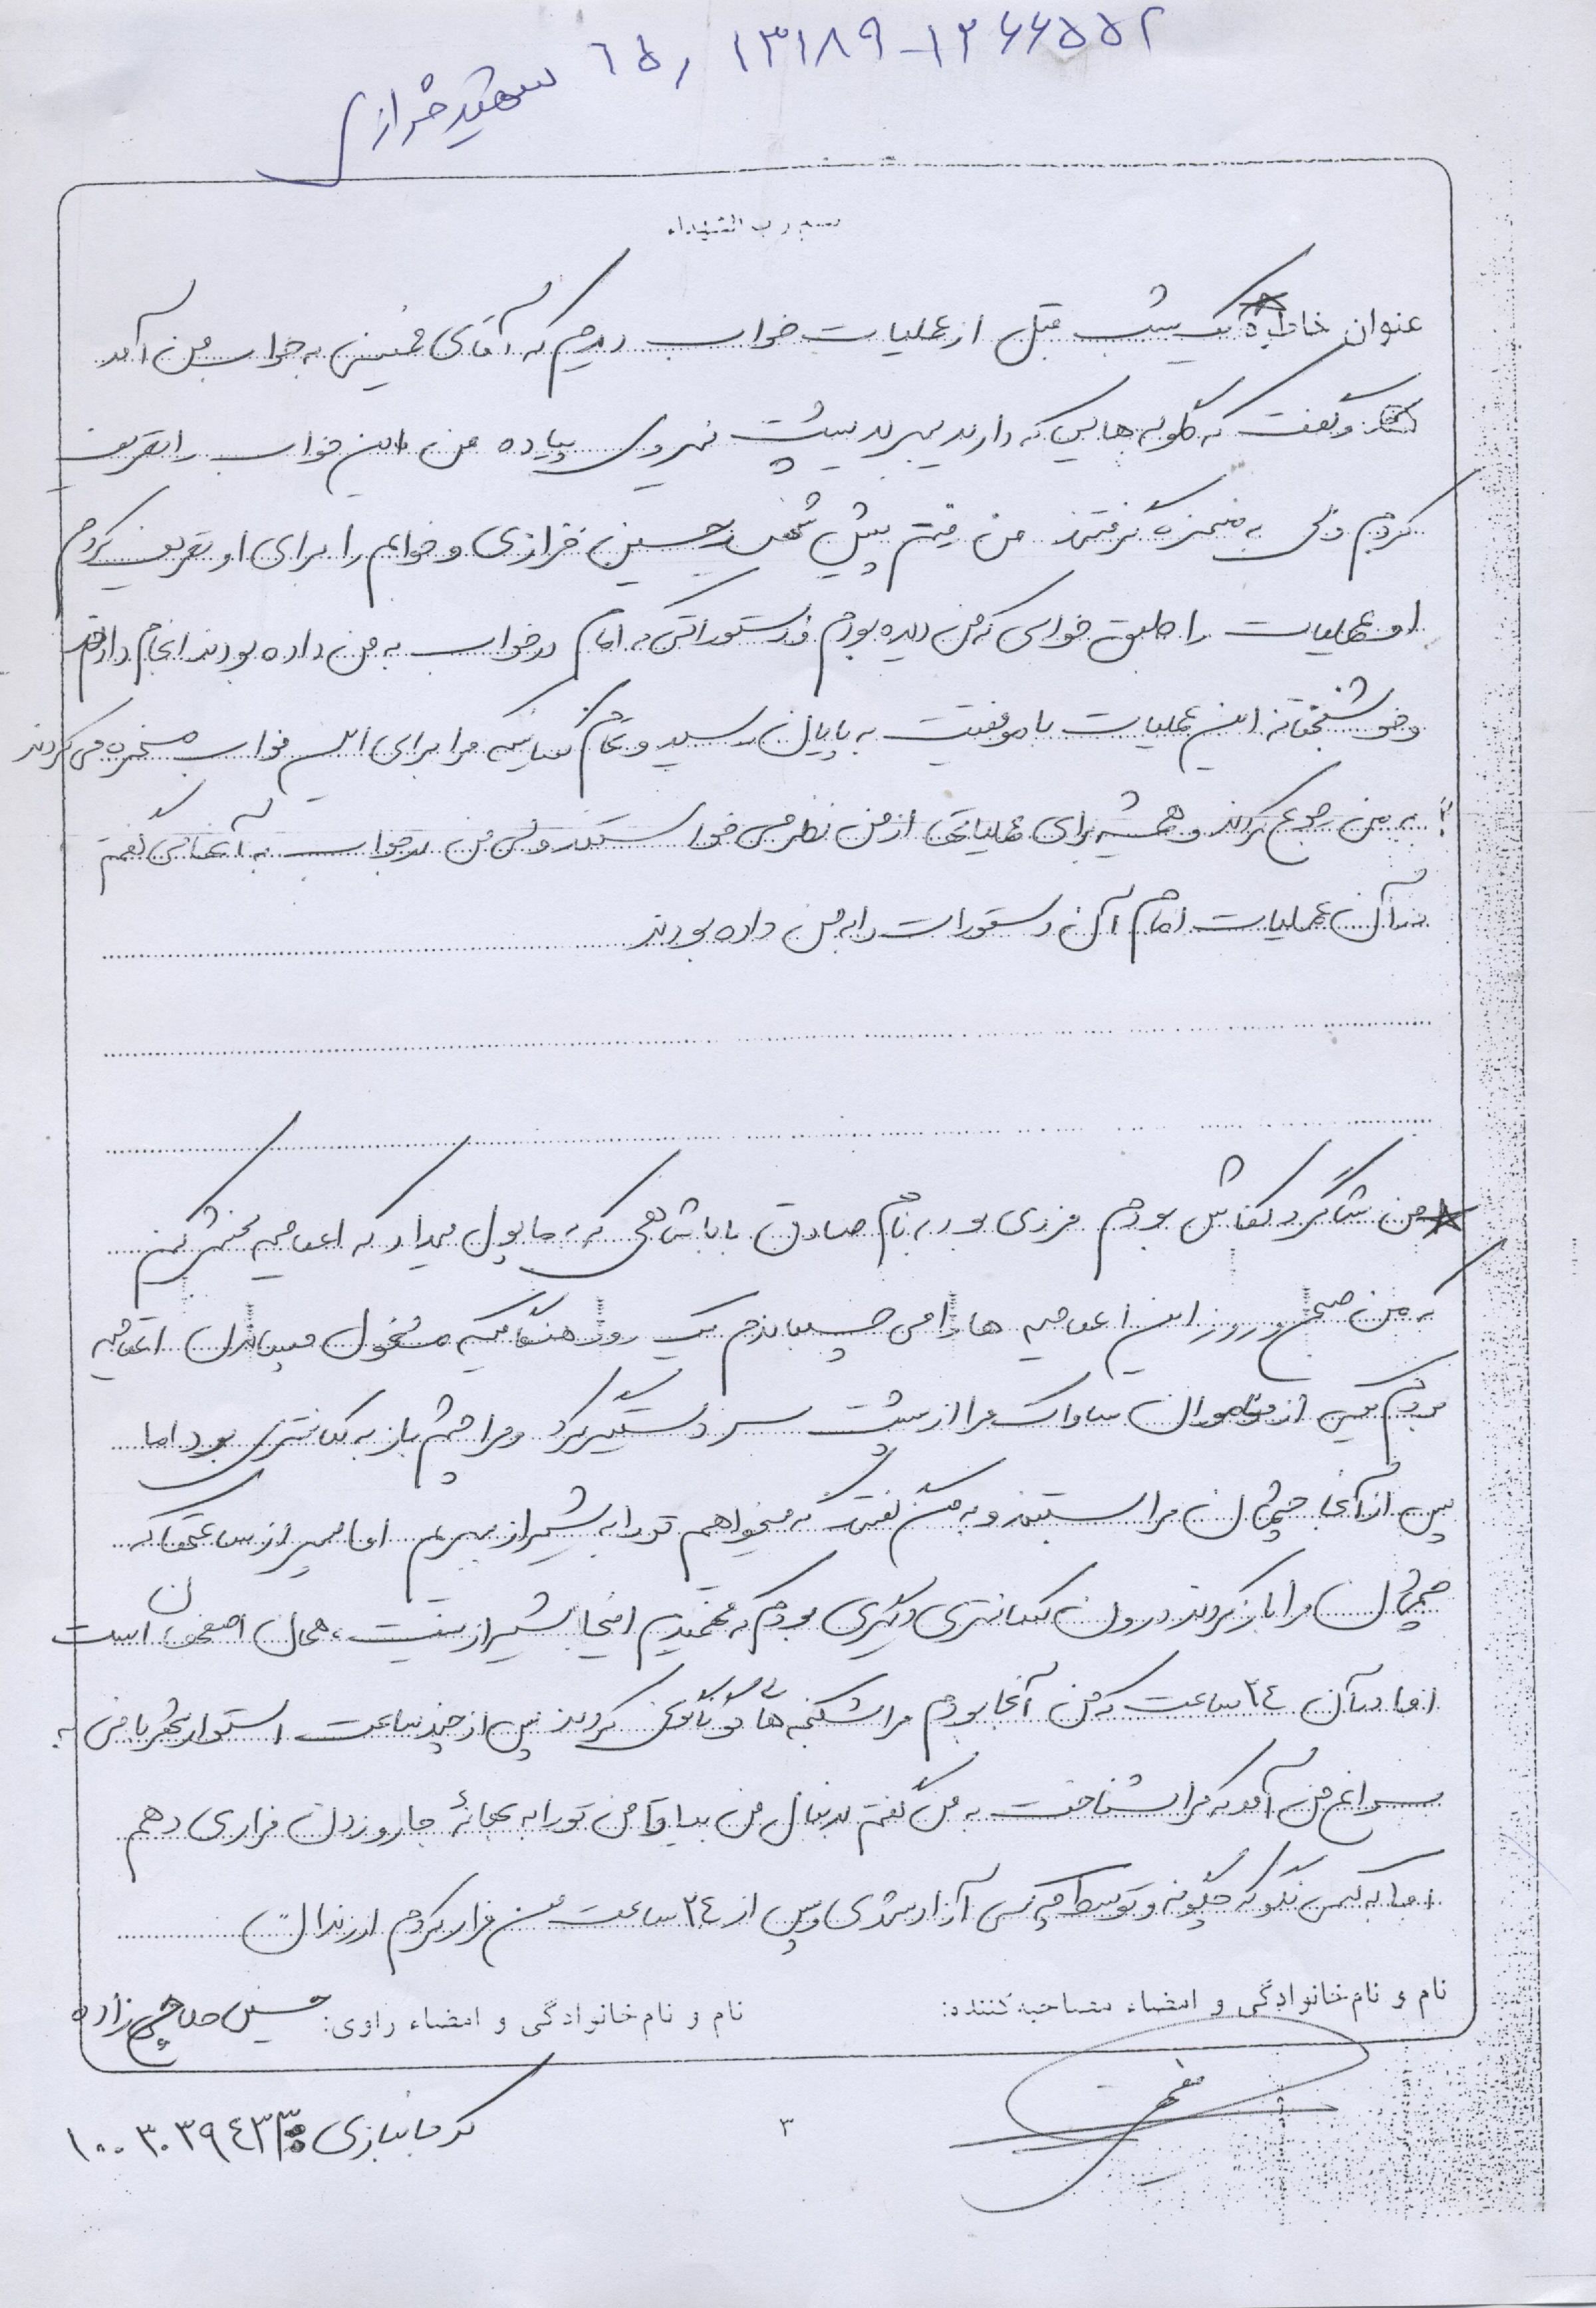 ۶۵ر ۱۳۱۸۹-۱۲۶۶۵۵۲
شهید خرازی
بسم رب الشهداء
عنوان خاطره یک شب قبل از عملیات خواب دیدم که آقای خمینی به خواب من آمد
و گفت که گلوله هایی که دارید ببرید پشت نیروی پیاده من این خواب را تعریف
کردم ولی به مسخره گرفتند من رفتم پیش شهید حسین خرازی و خوابم را برای او تعریف کردم
او عملیات را طبق خوابی که من دیده بودم و دستوراتی که امام در خواب به من داده بودند انجام دادند
و خوشبختانه این عملیات با موفقیت به پایان رسید و تمام کسانیکه مرا برای این خواب مسخره می کردند
به من رجوع کردند و همیشه برای عملیاتی از من نظر می خواستند ولی من در جواب به آنها می گفتم
در آن عملیات امام آن دستورات را به من داده بودند
من شاگرد کفاش بودم فردی بود به نام صادق باباشاهی که به ما پول میداد که اعلامیه پخش کنیم
که من صبح و روز این اعلامیه ها را می چسباندم یک روز هنگامیکه مشغول چسباندن اعلامیه
بودم یکی از ماموران ساواک مرا از پشت سر دستگیر کرد و مرا چشم باز به کلانتری برد اما
پس از آنجا چشمان مرا بستند و به من گفتند که میخواهم تو را به شیراز ببریم اما پس از ساعتها که
چشمان مرا باز کردند درون کلانتری دیگری بودم که فهمیدم اینجا شیراز نیست، همان اصفهان است
اما در آن ۲۴ ساعت که من آنجا بودم مرا شکنجه های گوناگونی کردند پس از چند ساعت استوار به
سراغ من آمد که مرا شناخت به من گفتم بدنبال من بیا تا من تو را به بهانه جارو زدن فراری دهم
اما به کسی نگو که چگونه و توسط چه کسی آزاد شدی و پس از ۲۴ ساعت من فرار کردم از زندان
نام و نام خانوادگی و امضاء مصاحبه کننده:
نام و نام خانوادگی و امضاء راوی: حسین حلاجی زاده
کد جانبازی
۳